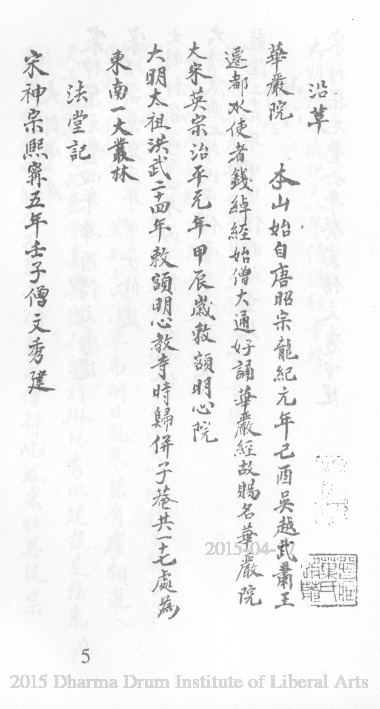 沿革
華嚴院　本山始自唐昭宗龍紀元年己酉吳越武肅王
遷都水使者錢綽經始僧大通好誦華嚴經故賜名華嚴院
大宋英宗治平元年甲辰歲敕額明心院
大明太祖洪武二十四年敕額明心教寺時歸併子菴共一十七處為
東南一大叢林
法堂記
宋神宗熙甯五年壬子僧文秀建
5
2015-04-
2015 Dharma Drum Institute of Liberal Arts